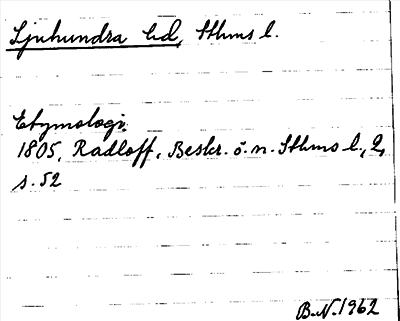 Sjuhundra hd, Sthms l.
Etymologi.
1805, Radloff, Beskr. ö. n. Sthms l., 2,
s. 52
B.N. 1962